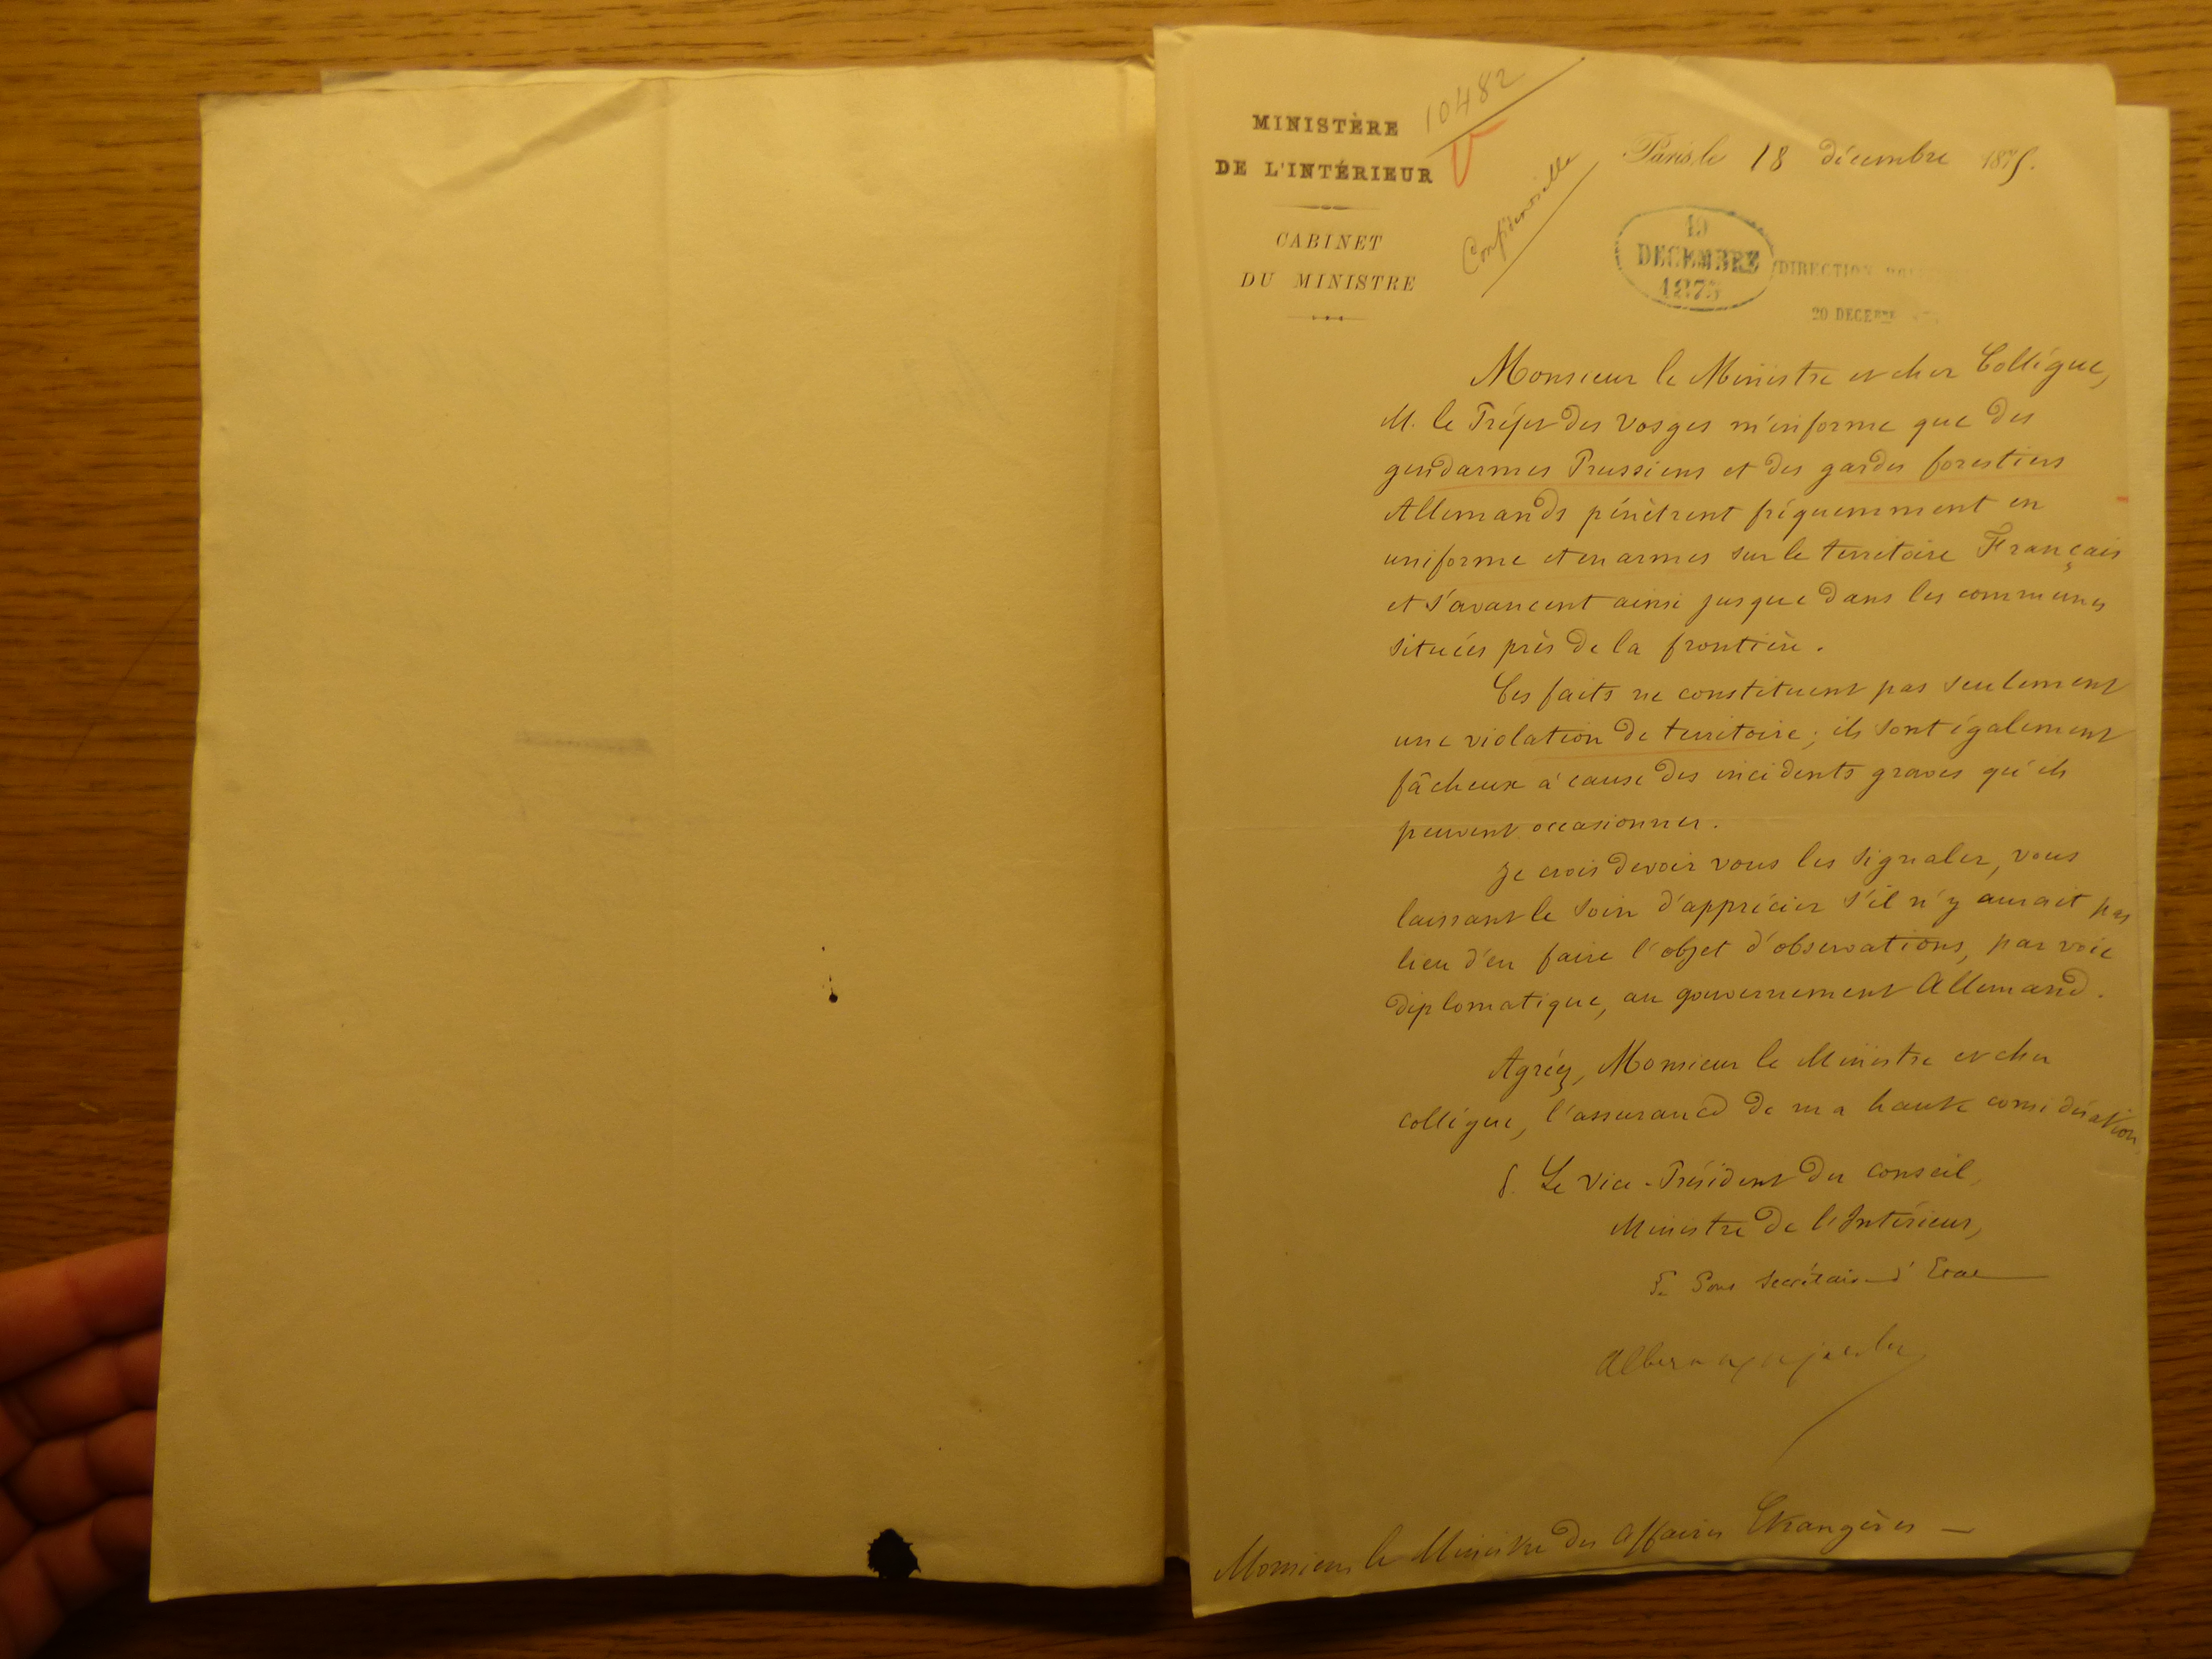 MINISTÈRE
DE L'INTÉRIEUR
CABINET
DU MINISTRE
10482
Confidentielle
Paris, le 18 décembre 1875.
19
DECEMBRE
1875
DIRECTION
20 DECEBRE
Monsieur le Ministre et cher Collègue,
M. le Préfet des Vosges m'informe que des
gendarmes Prussiens et des gardes forestiers
Allemands pénètrent fréquemment en
uniforme et en armes sur le territoire Français
et s'avancent ainsi jusque dans les communes
situées près de la frontière.
Ces faits ne constituent pas seulement
une violation de territoire; ils sont également
fâcheux à cause des incidents graves qu'ils
peuvent occasionner.
Je crois devoir vous les signaler, vous
laissant le soin d'apprécier s'il n'y aurait pas
lieu d'en faire l'objet d'observations, par voie
diplomatique, au gouvernement Allemand.
Agréez, Monsieur le Ministre et cher
collègue, l'assurance de ma haute considération
P. Le Vice-Président du Conseil,
Ministre de l'Intérieur,
Le Sous Secrétaire d'Etat
Monsieur le Ministre des Affaires Etrangères —